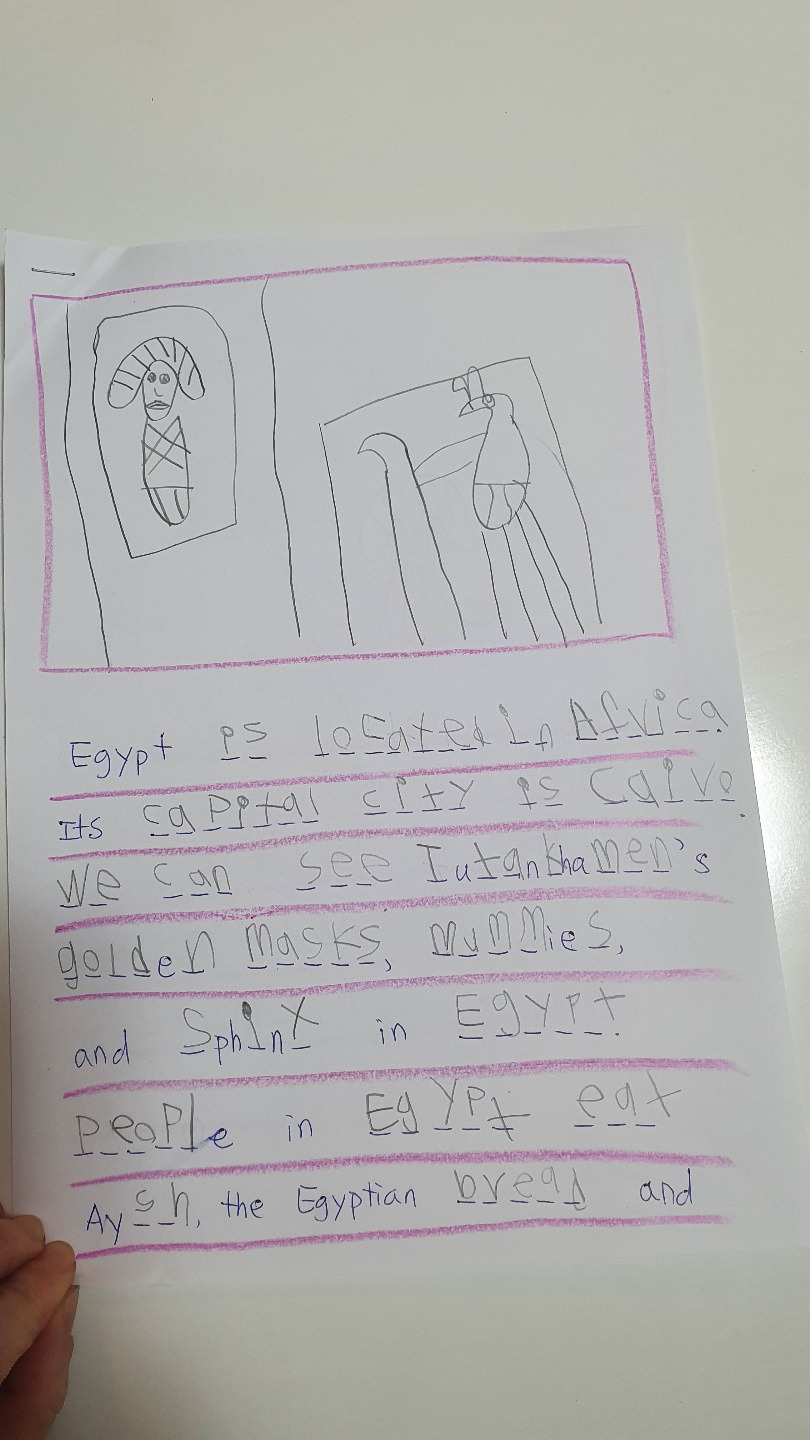 Egypt is located in Africa.
Its capital city is Cairo.
We can see Tutankhamen's
golden masks, mummies,
and Sphinx in Egypt.
People in Egypt eat
Aysh, the Egyptian bread and